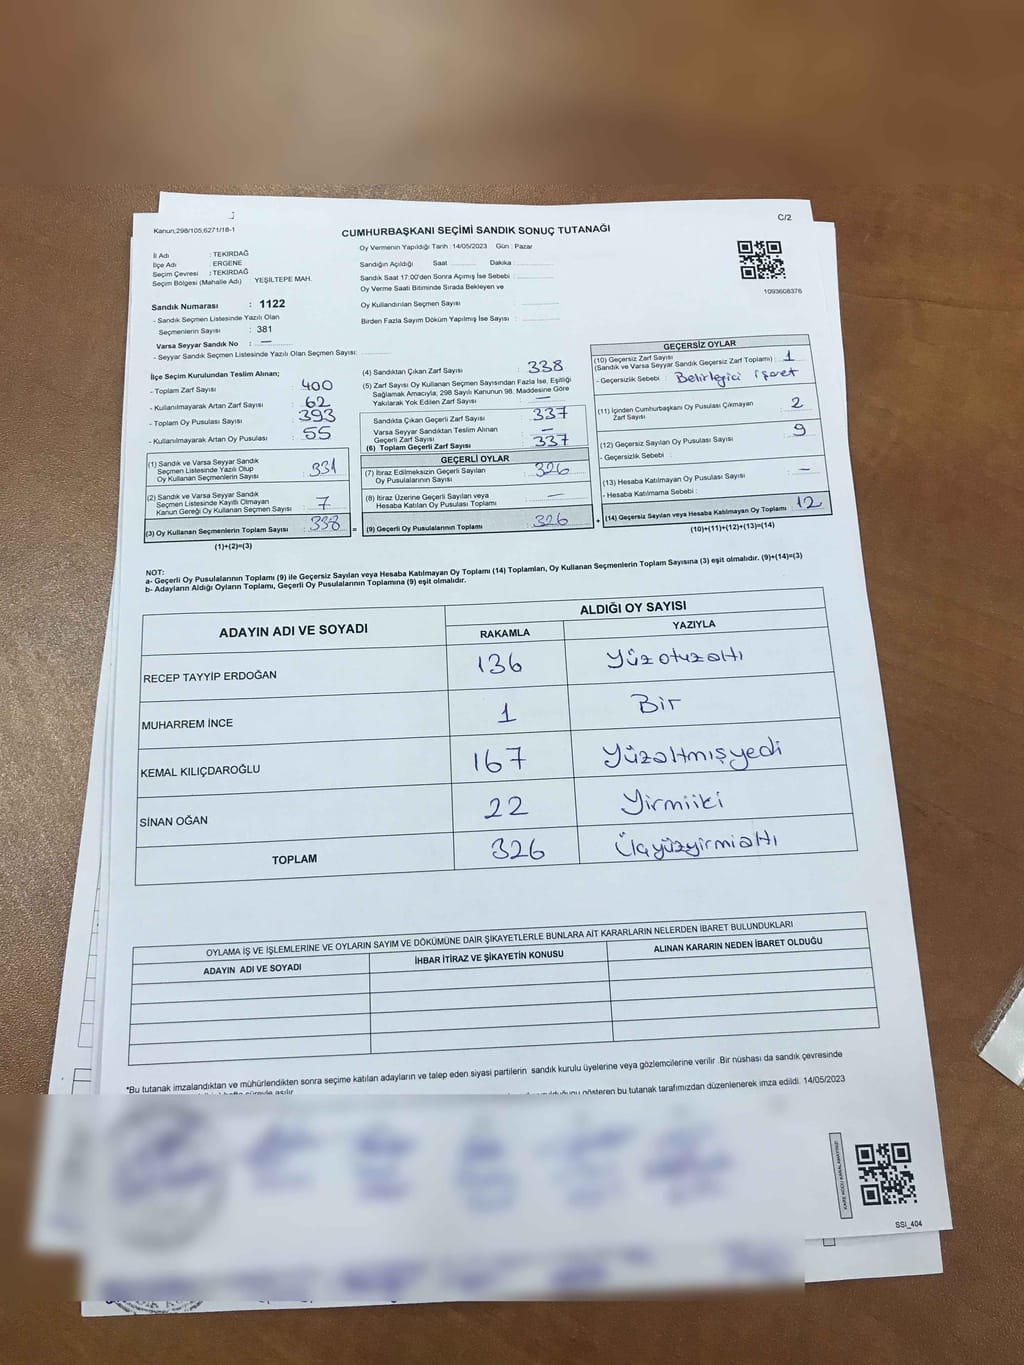 Kanun,298/105;6271/18-1
C/2
CUMHURBAŞKANI SEÇİMİ SANDIK SONUÇ TUTANAĞI
İl Adı : TEKİRDAĞ
İlçe Adı : ERGENE
Seçim Çevresi : TEKİRDAĞ
Seçim Bölgesi (Mahalle Adı) YEŞİLTEPE MAH.
Oy Vermenin Yapıldığı Tarih : 14/05/2023 Gün : Pazar
Sandığın Açıldığı Saat Dakika
Sandık Saat 17:00'den Sonra Açımış İse Sebebi
Oy Verme Saati Bitiminde Sırada Bekleyen ve
Oy Kullandırılan Seçmen Sayısı
Birden Fazla Sayım Döküm Yapılmış İse Sayısı
1093608376
Sandık Numarası : 1122
- Sandık Seçmen Listesinde Yazılı Olan
Seçmenlerin Sayısı : 381
Varsa Seyyar Sandık No : —
- Seyyar Sandık Seçmen Listesinde Yazılı Olan Seçmen Sayısı:
İlçe Seçim Kurulundan Teslim Alınan;
- Toplam Zarf Sayısı : 400
- Kullanılmayarak Artan Zarf Sayısı : 62
- Toplam Oy Pusulası Sayısı : 393
- Kullanılmayarak Artan Oy Pusulası : 55
(1) Sandık ve Varsa Seyyar Sandık
Seçmen Listesinde Yazılı Olup
Oy Kullanan Seçmenlerin Sayısı : 331
(2) Sandık ve Varsa Seyyar Sandık
Seçmen Listesinde Kayıtlı Olmayan
Kanun Gereği Oy Kullanan Seçmen Sayısı : 7
(3) Oy Kullanan Seçmenlerin Toplam Sayısı : 338
(1)+(2)=(3)
(4) Sandıktan Çıkan Zarf Sayısı : 338
(5) Zarf Sayısı Oy Kullanan Seçmen Sayısından Fazla İse, Eşitliği
Sağlamak Amacıyla, 298 Sayılı Kanunun 98. Maddesine Göre
Yakılarak Yok Edilen Zarf Sayısı : —
Sandıkta Çıkan Geçerli Zarf Sayısı : 337
Varsa Seyyar Sandıktan Teslim Alınan
Geçerli Zarf Sayısı : —
(6) Toplam Geçerli Zarf Sayısı : 337
GEÇERLİ OYLAR
(7) İtiraz Edilmeksizin Geçerli Sayılan
Oy Pusulalarının Sayısı : 326
(8) İtiraz Üzerine Geçerli Sayılan veya
Hesaba Katılan Oy Pusulası Toplamı : —
= (9) Geçerli Oy Pusulalarının Toplamı : 326
GEÇERSİZ OYLAR
(10) Geçersiz Zarf Sayısı
(Sandık ve Varsa Seyyar Sandık Geçersiz Zarf Toplamı) : 1
- Geçersizlik Sebebi : Belirleyici işaret
(11) İçinden Cumhurbaşkanı Oy Pusulası Çıkmayan
Zarf Sayısı : 2
(12) Geçersiz Sayılan Oy Pusulası Sayısı : 9
- Geçersizlik Sebebi :
(13) Hesaba Katılmayan Oy Pusulası Sayısı : —
- Hesaba Katılmama Sebebi :
+ (14) Geçersiz Sayılan veya Hesaba Katılmayan Oy Toplamı : 12
(10)+(11)+(12)+(13)=(14)
NOT:
a- Geçerli Oy Pusulalarının Toplamı (9) ile Geçersiz Sayılan veya Hesaba Katılmayan Oy Toplamı (14) Toplamları, Oy Kullanan Seçmenlerin Toplam Sayısına (3) eşit olmalıdır. (9)+(14)=(3)
b- Adayların Aldığı Oyların Toplamı, Geçerli Oy Pusulalarının Toplamına (9) eşit olmalıdır.
ADAYIN ADI VE SOYADI ALDIĞI OY SAYISI
RAKAMLA YAZIYLA
RECEP TAYYİP ERDOĞAN 136 Yüzotuzaltı
MUHARREM İNCE 1 Bir
KEMAL KILIÇDAROĞLU 167 Yüzaltmışyedi
SİNAN OĞAN 22 Yirmiiki
TOPLAM 326 Üçyüzyirmialtı
OYLAMA İŞ VE İŞLEMLERİNE VE OYLARIN SAYIM VE DÖKÜMÜNE DAİR ŞİKAYETLERLE BUNLARA AİT KARARLARIN NELERDEN İBARET BULUNDUKLARI
ADAYIN ADI VE SOYADI İHBAR İTİRAZ VE ŞİKAYETİN KONUSU ALINAN KARARIN NEDEN İBARET OLDUĞU
*Bu tutanak imzalandıktan ve mühürlendikten sonra seçime katılan adayların ve talep eden siyasi partilerin sandık kurulu üyelerine veya gözlemcilerine verilir .Bir nüshası da sandık çevresinde
gösteren bu tutanak tarafımızdan düzenlenerek imza edildi. 14/05/2023
KARE KODU KARALAMAYINIZ!
SSI_404